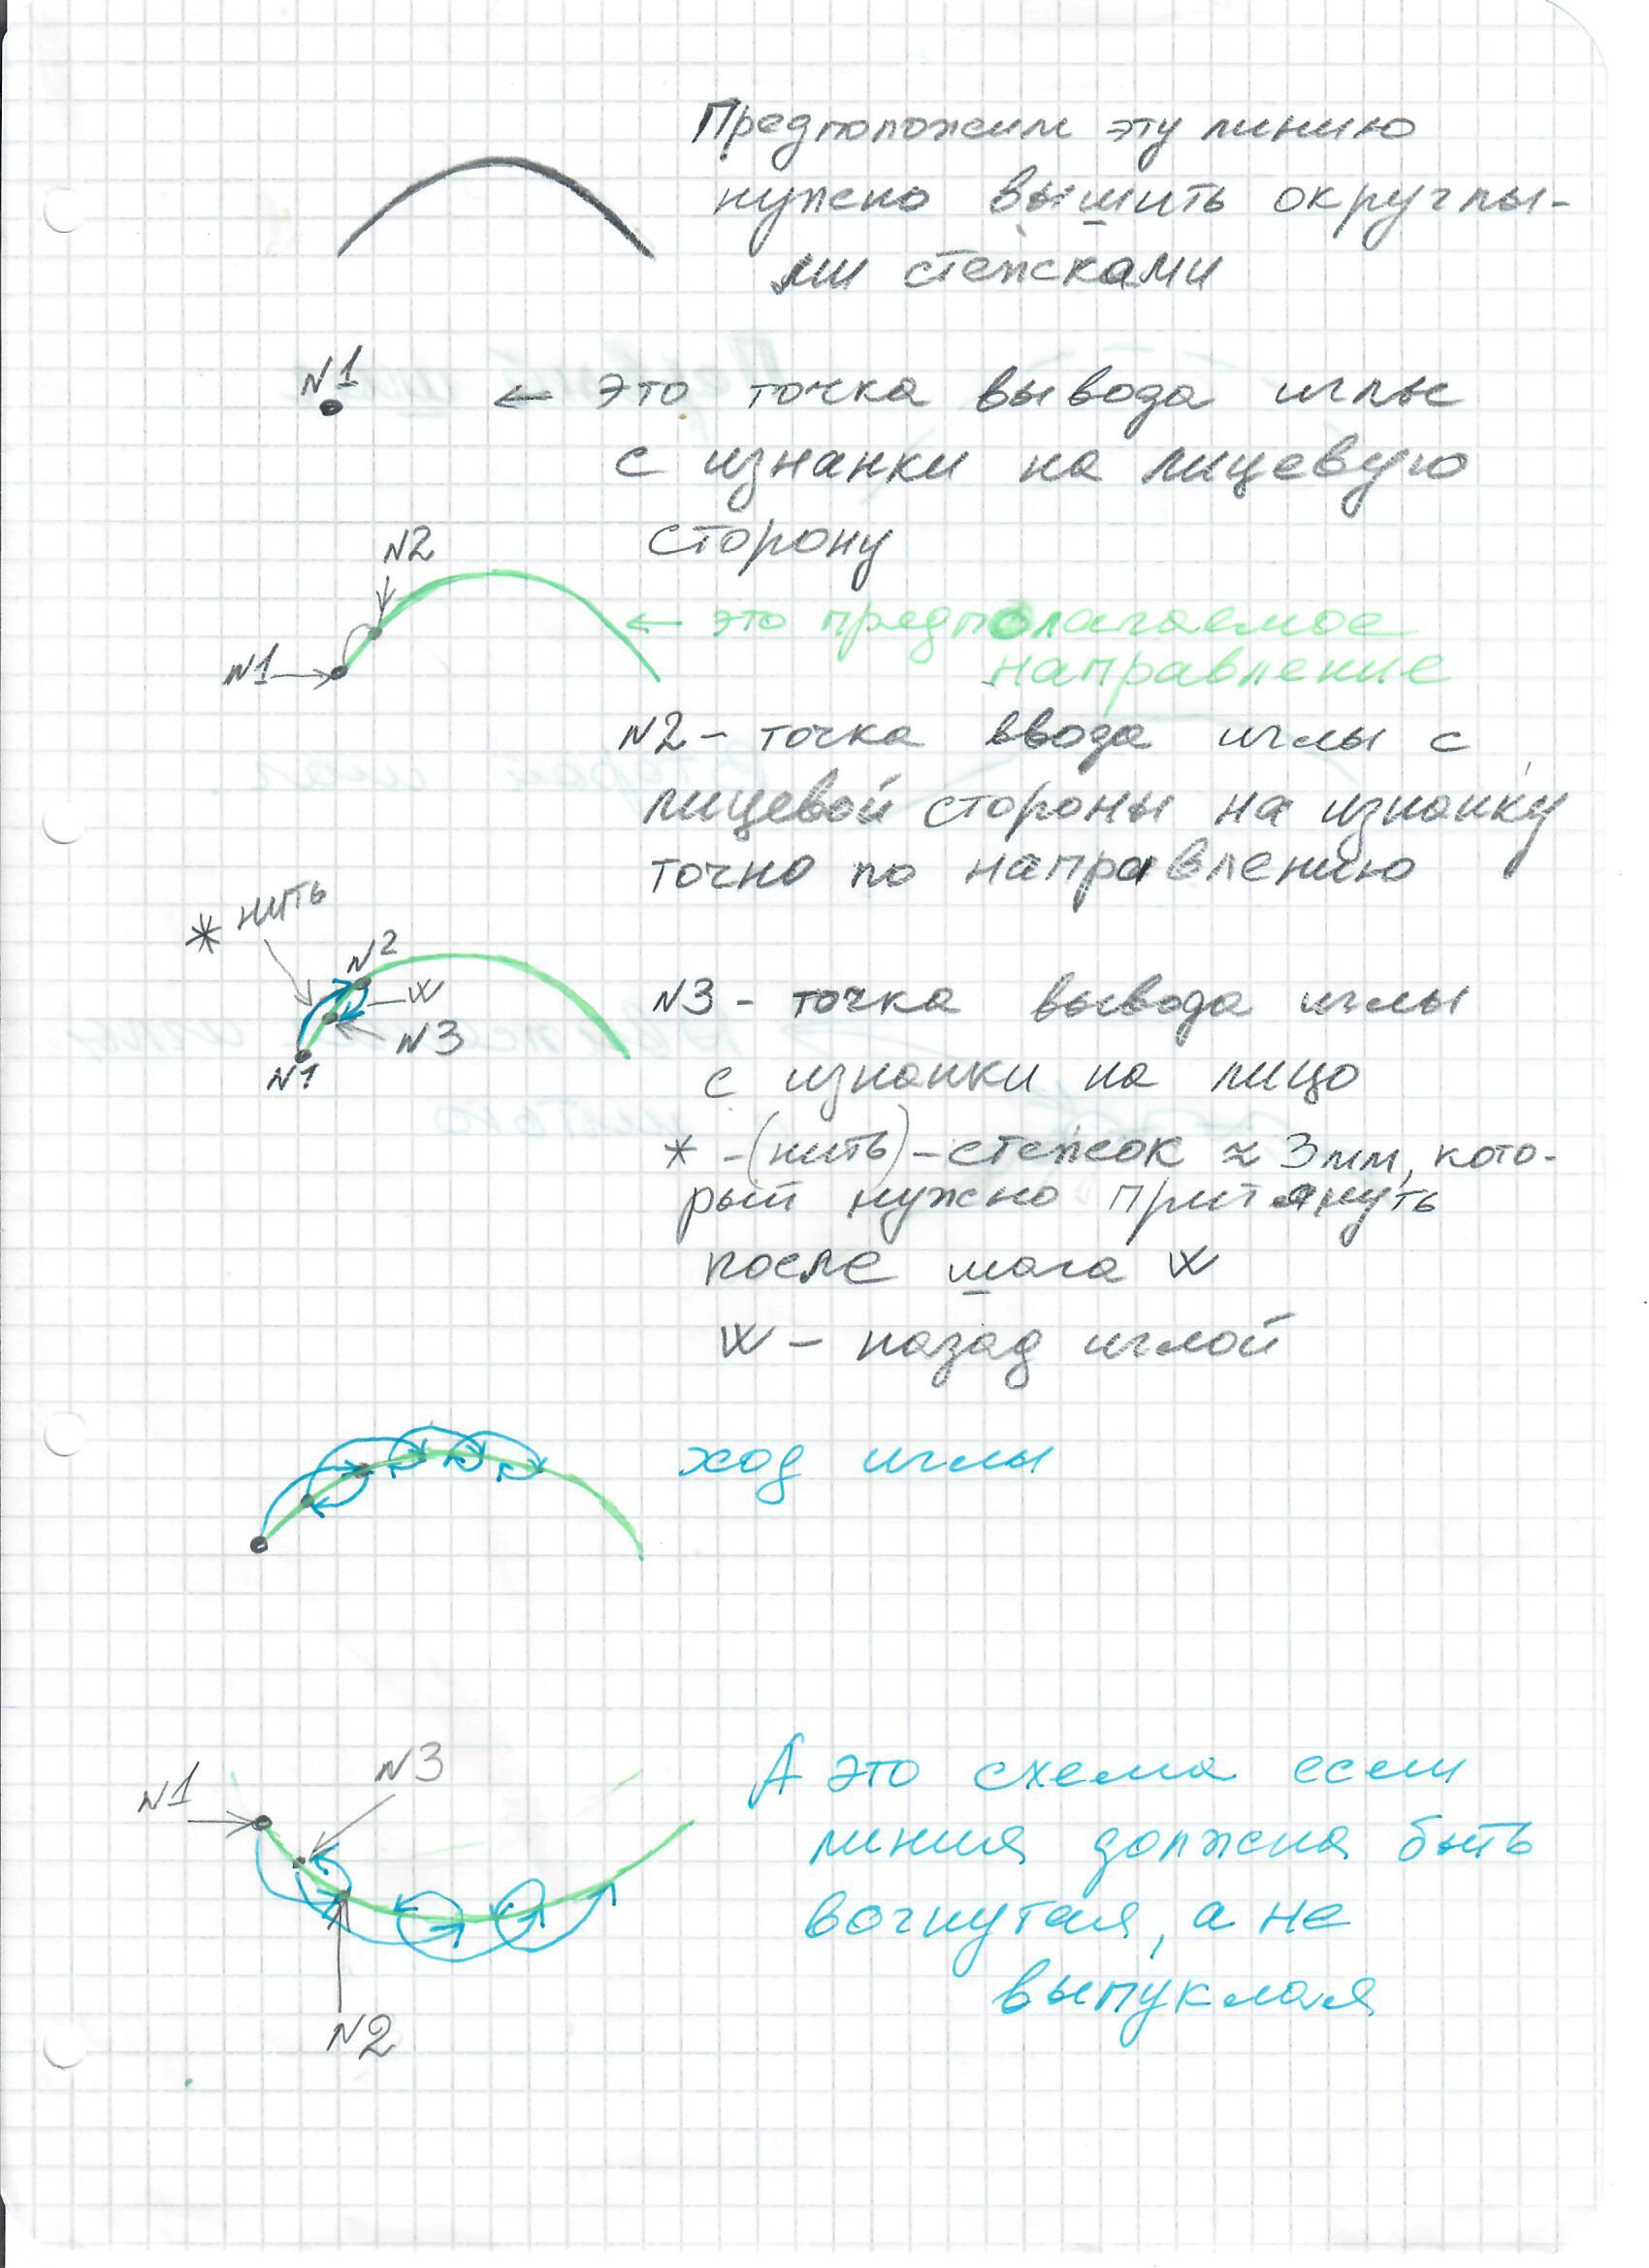 Предположим эту линию
нужно вышить округлы-
ми стежками
N1
← это точка вывода иглы
с изнанки на лицевую
сторону
N2
N1
← это предполагаемое
направление
N2 – точка ввода иглы с
лицевой стороны на изнанку
точно по направлению
* нить
N2
W
N3
N1
N3 – точка вывода иглы
с изнанки на лицо
* – (нить) – стежок ≈ 3мм, кото-
рый нужно притянуть
после шага W
W – назад иглой
ход иглы
N3
N1
А это схема если
линия должна быть
вогнутая, а не
выпуклая
N2